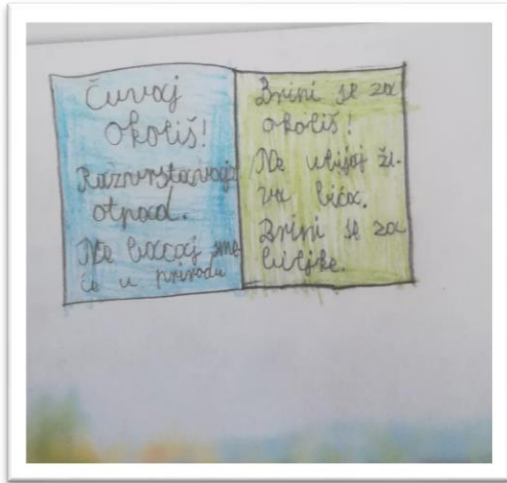 Čuvaj
okoliš!
Razvrstavaj
otpad.
Ne bacaj sme-
će u prirodu
Brini se za
okoliš!
Ne ubijaj ži-
va bića.
Brini se za
biljke.